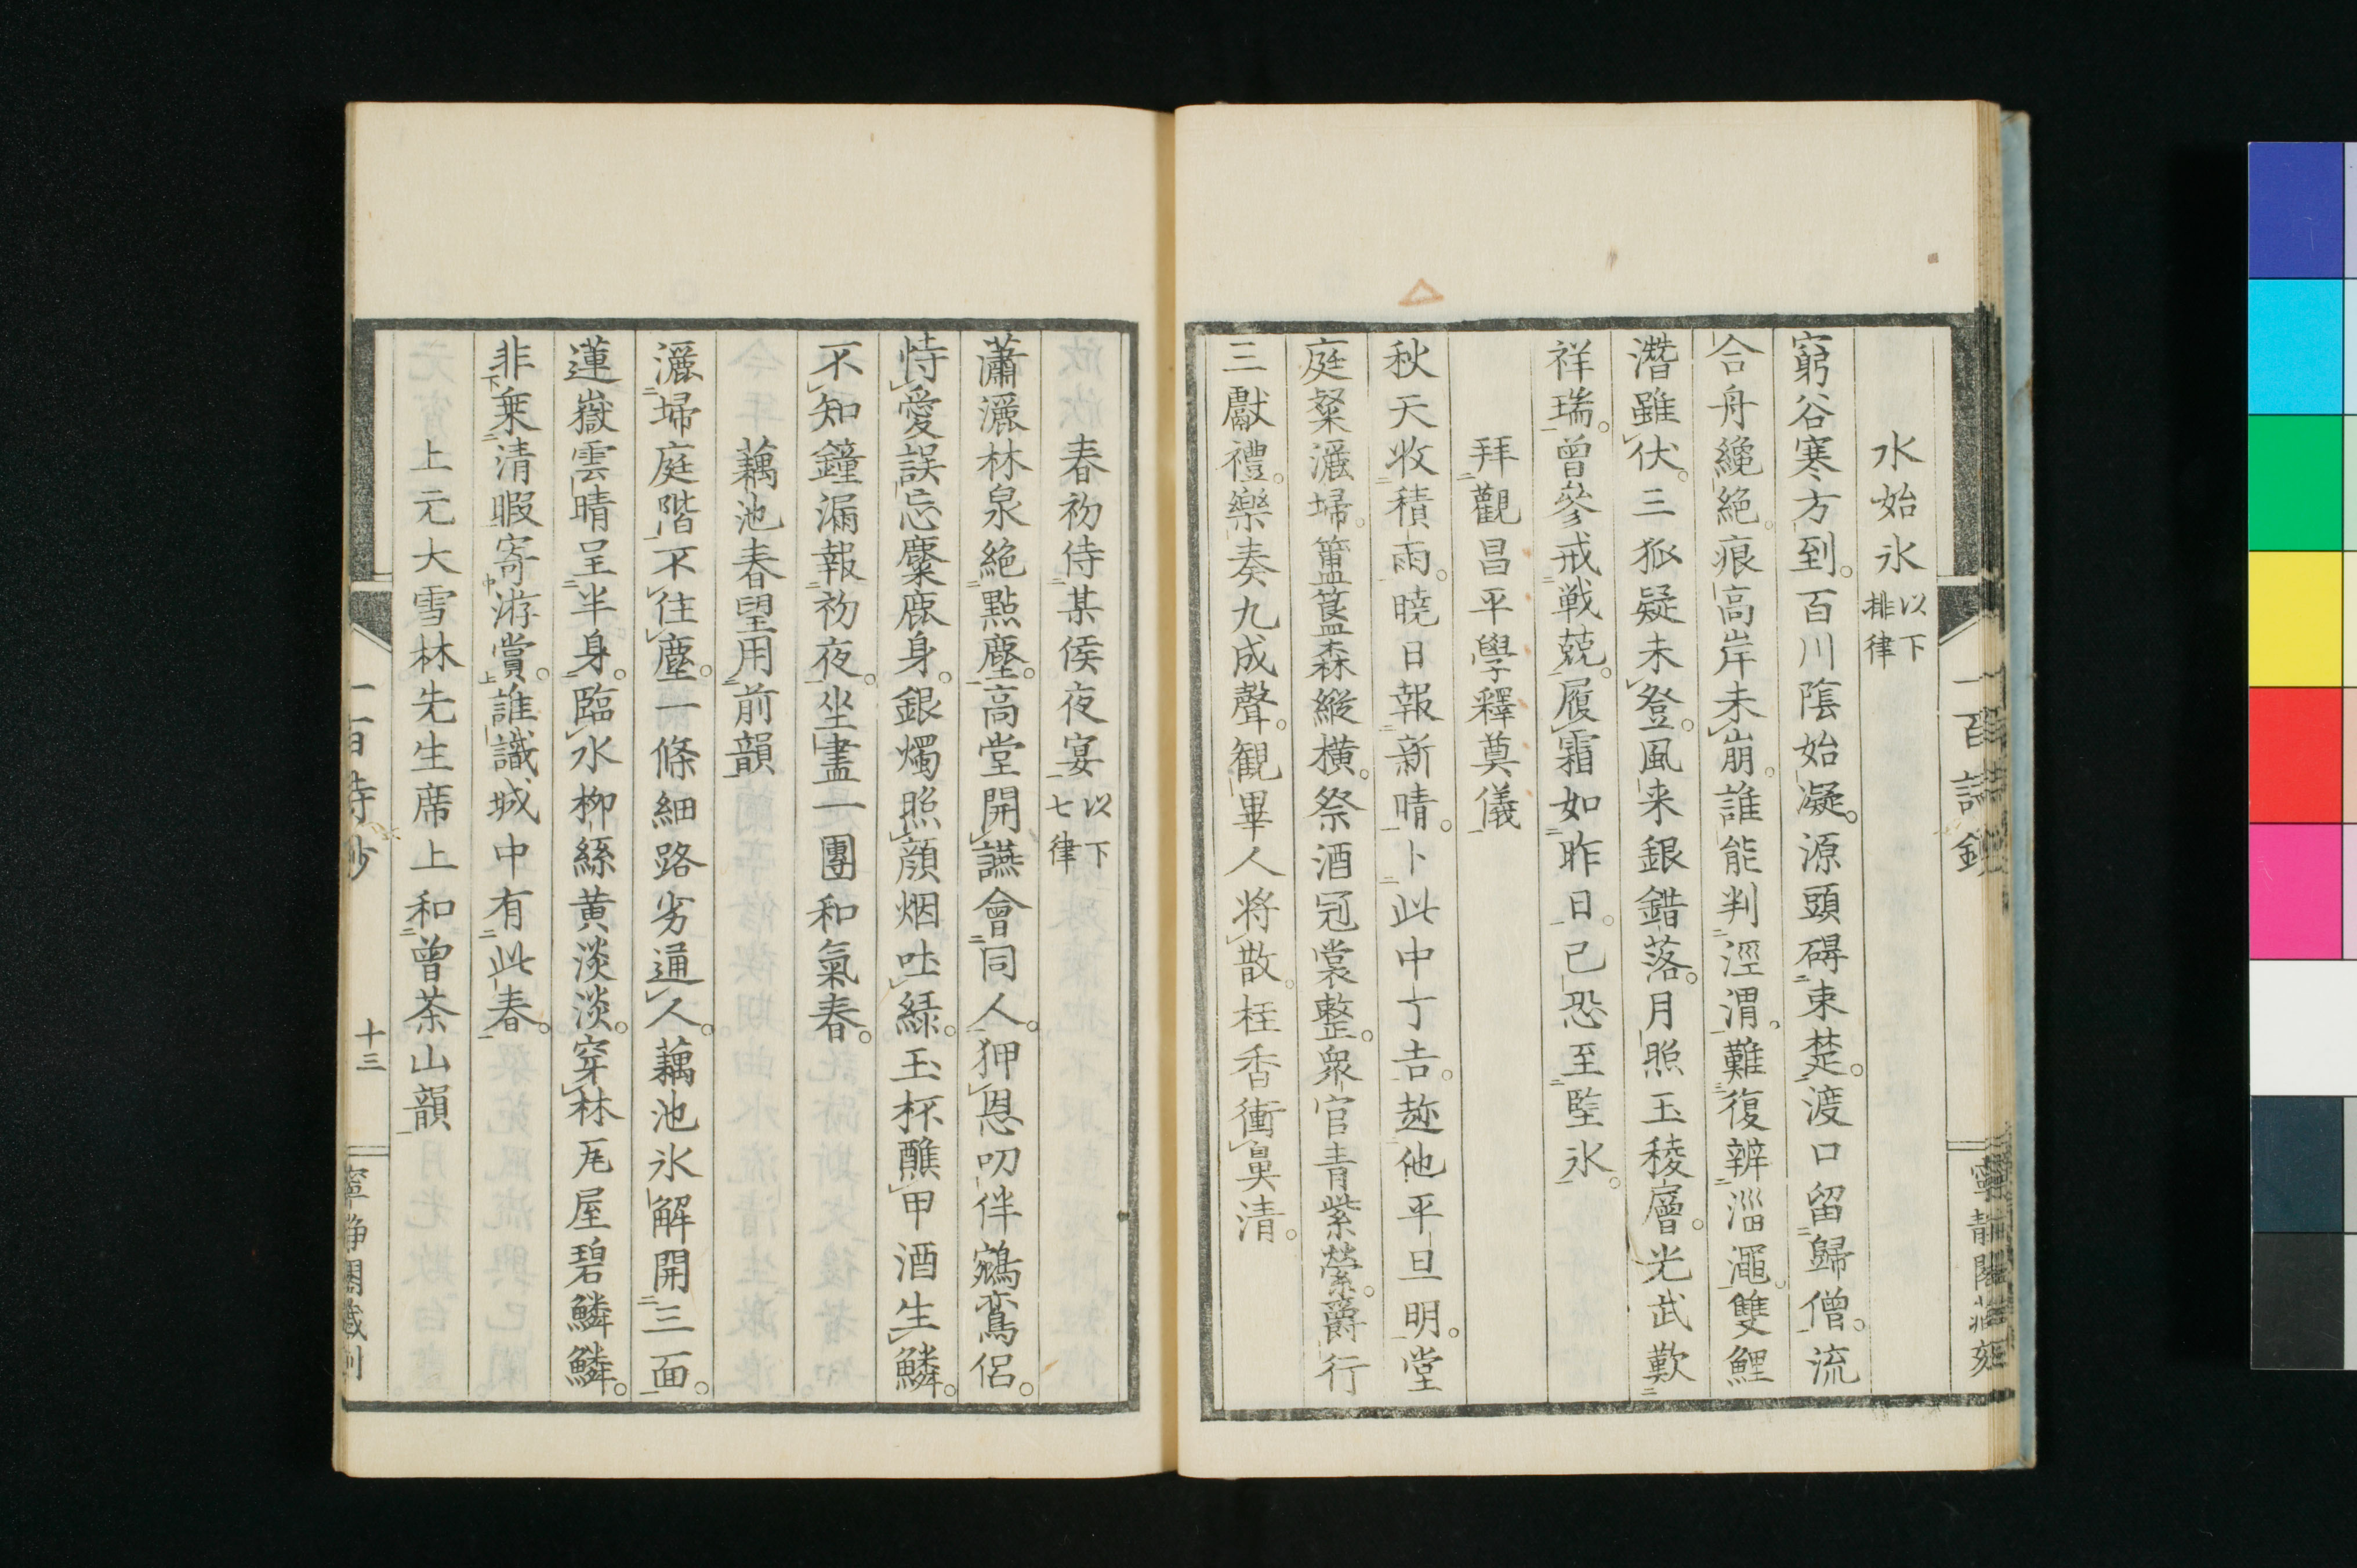 水始氷 以下排律
窮谷寒方到。百川陰始凝。源頭碍束楚。渡口留歸僧。流
合舟纔絶。痕高岸未崩。誰能判涇渭。難復辨淄澠。雙鯉
潛雖伏。三狐疑未登。風来銀錯落。月照玉稜層。光武歎
祥瑞。曾參戒戰兢。履霜如昨日。已恐至堅氷。
拜觀昌平學釋奠儀
秋天收積雨。曉日報新晴。卜此中丁吉。趂他平旦明。堂
庭粲灑埽。簠簋森縱橫。祭酒冠裳整。衆官青紫縈。爵行
三獻禮。樂奏九成聲。觀畢人將散。桂香衝鼻清。
春初侍某侯夜宴 以下七律
瀟灑林泉絶點塵。高堂開讌會同人。狎恩叨伴鵷鸞侶。
恃愛誤忘麋鹿身。銀燭照顔烟吐緑。玉杯醮甲酒生鱗。
不知鐘漏報初夜。坐盡一團和氣春。
藕池春望用前韻
灑埽庭階不住塵。一條細路劣通人。藕池氷解開三面。
蓮嶽雲晴呈半身。臨水柳絲黄淡淡。穿林瓦屋碧鱗鱗。
非乘清暇寄游賞。誰識城中有此春。
上元大雪林先生席上和曾茶山韻
十三